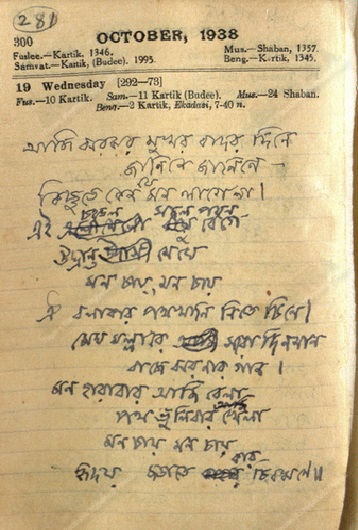 281
300 OCTOBER, 1938
Fuslee.—Kartik. 1346. Mus.—Shaban, 1357.
Samvat.—Kartik, (Budee). 1995. Beng.—Kartik, 1345.
19 Wednesday [292—73]
Fus.—10 Kartik. Sam.—11 Kartik (Budee). Mus.—24 Shaban.
Beng.—2 Kartik, Ekadasi, 7-40 n.
আজি ঝরঝর মুখর বাদর দিনে
জানিনে জানিনে —
কিছুতে কেন যে মন লাগেনা।
এই চঞ্চল সজল পবন বেগে
উদ্ভ্রান্ত মেঘে
মন চায়, মন চায়
ঐ বলাকার পথখানি নিতে চিনে।
মেঘ মল্লারে সারা দিনমান
বাজে ঝরনার গান।
মন হারাবার আজি বেলা
পথ ভুলিবার খেলা
মন চায় মন চায়
হৃদয় জড়াতে কার চিরঋণে॥